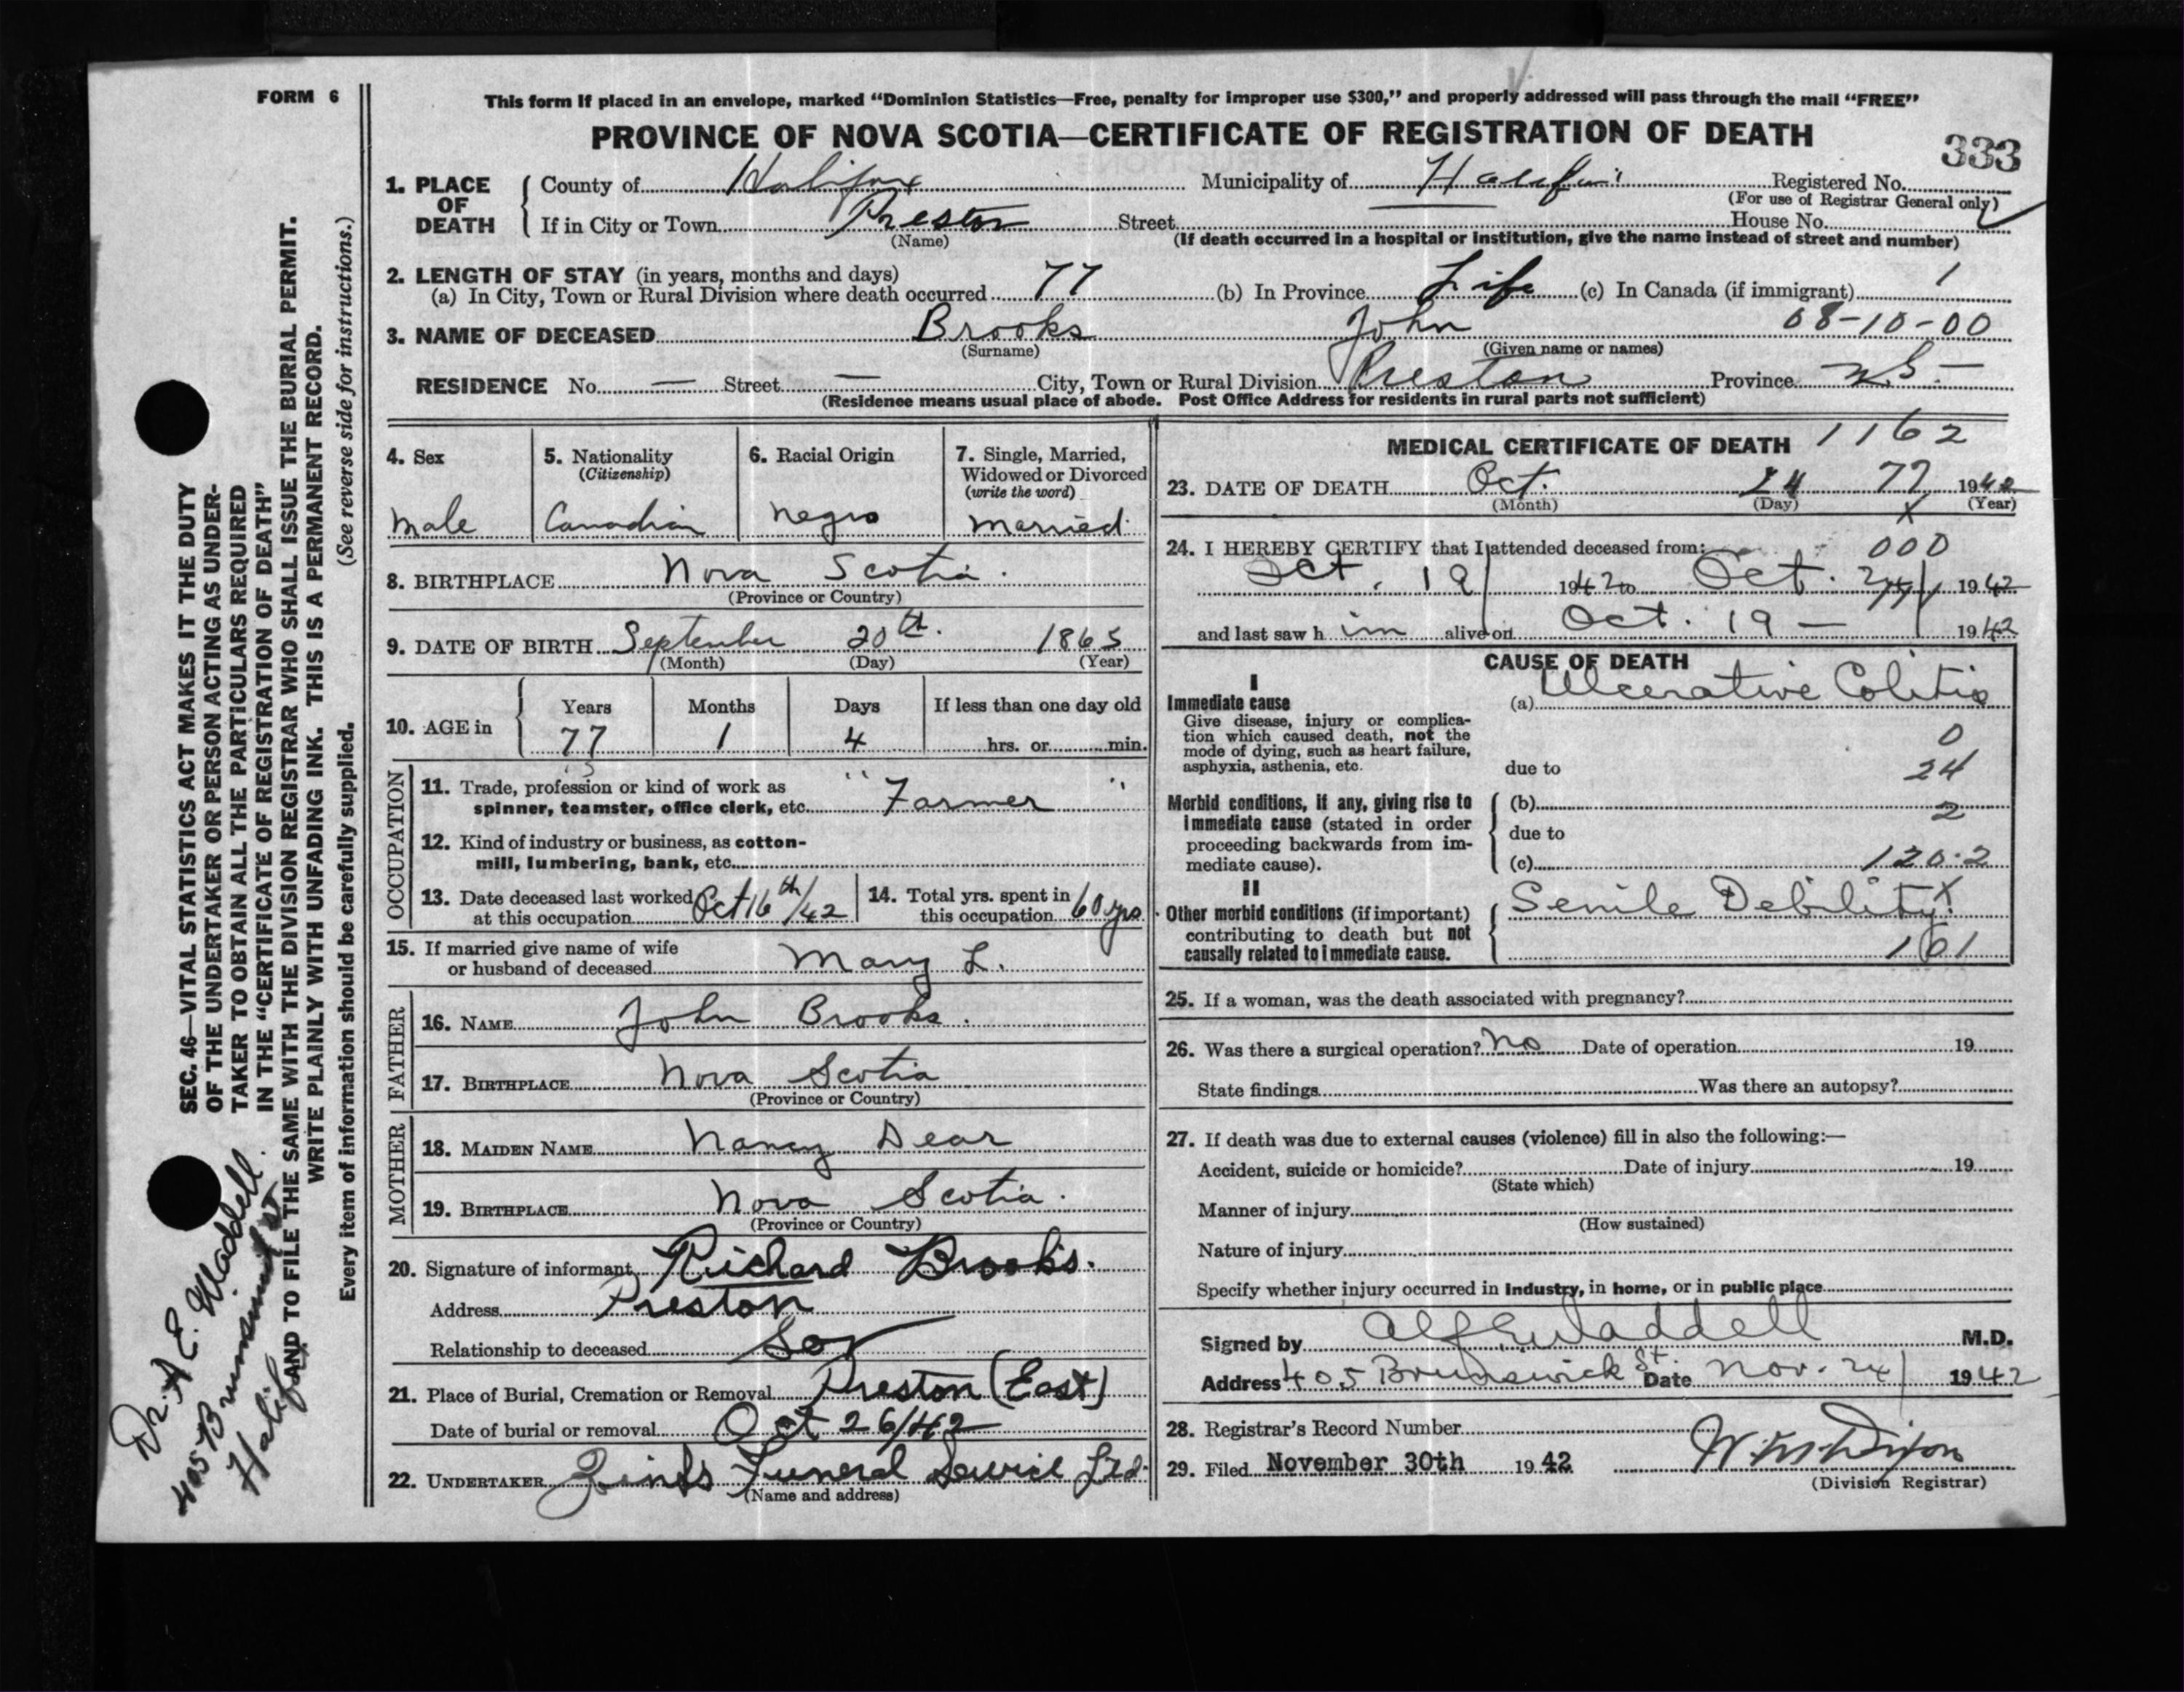 FORM 6
This form if placed in an envelope, marked “Dominion Statistics—Free, penalty for improper use $300,” and properly addressed will pass through the mail “FREE”
PROVINCE OF NOVA SCOTIA—CERTIFICATE OF REGISTRATION OF DEATH
333
1. PLACE OF DEATH
County of Halifax Municipality of Halifax Registered No.
(For use of Registrar General only)
If in City or Town Preston Street House No.
(Name) (If death occurred in a hospital or institution, give the name instead of street and number)
2. LENGTH OF STAY (in years, months and days)
(a) In City, Town or Rural Division where death occurred 77 (b) In Province Life (c) In Canada (if immigrant) 1
3. NAME OF DECEASED Brooks John 08-10-00
(Surname) (Given name or names)
RESIDENCE No. — Street — City, Town or Rural Division Preston Province N.S.
(Residence means usual place of abode. Post Office Address for residents in rural parts not sufficient)
4. Sex
male
5. Nationality
(Citizenship)
Canadian
6. Racial Origin
negro
7. Single, Married,
Widowed or Divorced
(write the word)
married.
8. BIRTHPLACE Nova Scotia.
(Province or Country)
9. DATE OF BIRTH September 20th. 1865
(Month) (Day) (Year)
10. AGE in
Years Months Days If less than one day old
77 1 4 hrs. or min.
OCCUPATION
11. Trade, profession or kind of work as
spinner, teamster, office clerk, etc. " Farmer "
12. Kind of industry or business, as cotton-
mill, lumbering, bank, etc.
13. Date deceased last worked
at this occupation Oct 16th/42
14. Total yrs. spent in
this occupation 60 yrs
15. If married give name of wife
or husband of deceased Mary L.
FATHER
16. NAME John Brooks.
17. BIRTHPLACE Nova Scotia
(Province or Country)
MOTHER
18. MAIDEN NAME Nancy Dear
19. BIRTHPLACE Nova Scotia.
(Province or Country)
20. Signature of informant Richard Brooks.
Address Preston
Relationship to deceased Son
21. Place of Burial, Cremation or Removal Preston (East)
Date of burial or removal Oct 26/42
22. UNDERTAKER Funeral Service Ltd.
(Name and address)
MEDICAL CERTIFICATE OF DEATH 1162
23. DATE OF DEATH Oct. 24 77 1942
(Month) (Day) X (Year)
24. I HEREBY CERTIFY that I attended deceased from: 000
Oct. 19 1942 to Oct. 24 1942
and last saw h im alive on Oct. 19 — 1942
CAUSE OF DEATH
I
Immediate cause
Give disease, injury or complica-
tion which caused death, not the
mode of dying, such as heart failure,
asphyxia, asthenia, etc.
(a) Ulcerative Colitis
0
due to 24
Morbid conditions, if any, giving rise to
immediate cause (stated in order
proceeding backwards from im-
mediate cause).
(b) 2
due to
(c) 120.2
II
Other morbid conditions (if important)
contributing to death but not
causally related to immediate cause.
Senile Debility. X
161
25. If a woman, was the death associated with pregnancy?
26. Was there a surgical operation? No Date of operation 19
State findings Was there an autopsy?
27. If death was due to external causes (violence) fill in also the following:—
Accident, suicide or homicide? Date of injury 19
(State which)
Manner of injury
(How sustained)
Nature of injury
Specify whether injury occurred in industry, in home, or in public place
Signed by Alf E Waddell M.D.
Address 405 Brunswick St. Date Nov. 24 1942
28. Registrar's Record Number
29. Filed November 30th 1942
(Division Registrar)
SEC. 46—VITAL STATISTICS ACT MAKES IT THE DUTY
OF THE UNDERTAKER OR PERSON ACTING AS UNDER-
TAKER TO OBTAIN ALL THE PARTICULARS REQUIRED
IN THE “CERTIFICATE OF REGISTRATION OF DEATH”
AND TO FILE THE SAME WITH THE DIVISION REGISTRAR WHO SHALL ISSUE THE BURIAL PERMIT.
WRITE PLAINLY WITH UNFADING INK. THIS IS A PERMANENT RECORD.
Every item of information should be carefully supplied. (See reverse side for instructions.)
Dr. A E. Waddell.
405 Brunswick St
Halifax